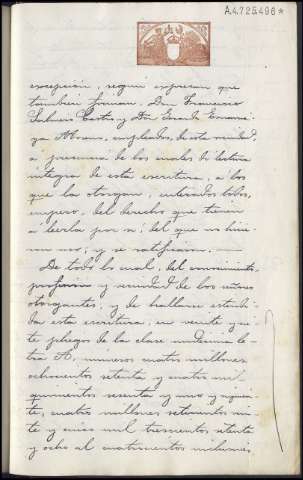 A.4.725.496*
excepción, según expresan que
también firman, Don Francisco
Salmer Castro y Dn Gerardo
Abram, empleados, de esta vecindad,
a presencia de los cuales di lectura
íntegra de esta escritura, a los
que la otorgan, enterados todos,
empero, del derecho que tienen
a leerla por sí, del que no hicie
ron uso; y se ratifican.
De todo lo cual, del conocimiento,
profesión y vecindad de los señores
otorgantes, y de hallarse extendi
da esta escritura, en veinte y sie
te pliegos de la clase undécima le-
tra A, números cuatro millones
ochocientos setenta y cuatro mil
quinientos sesenta y uno y siguien
te, cuatro millones setecientos vein
te y cinco mil trescientos setenta
y ocho al cuatrocientos inclusives